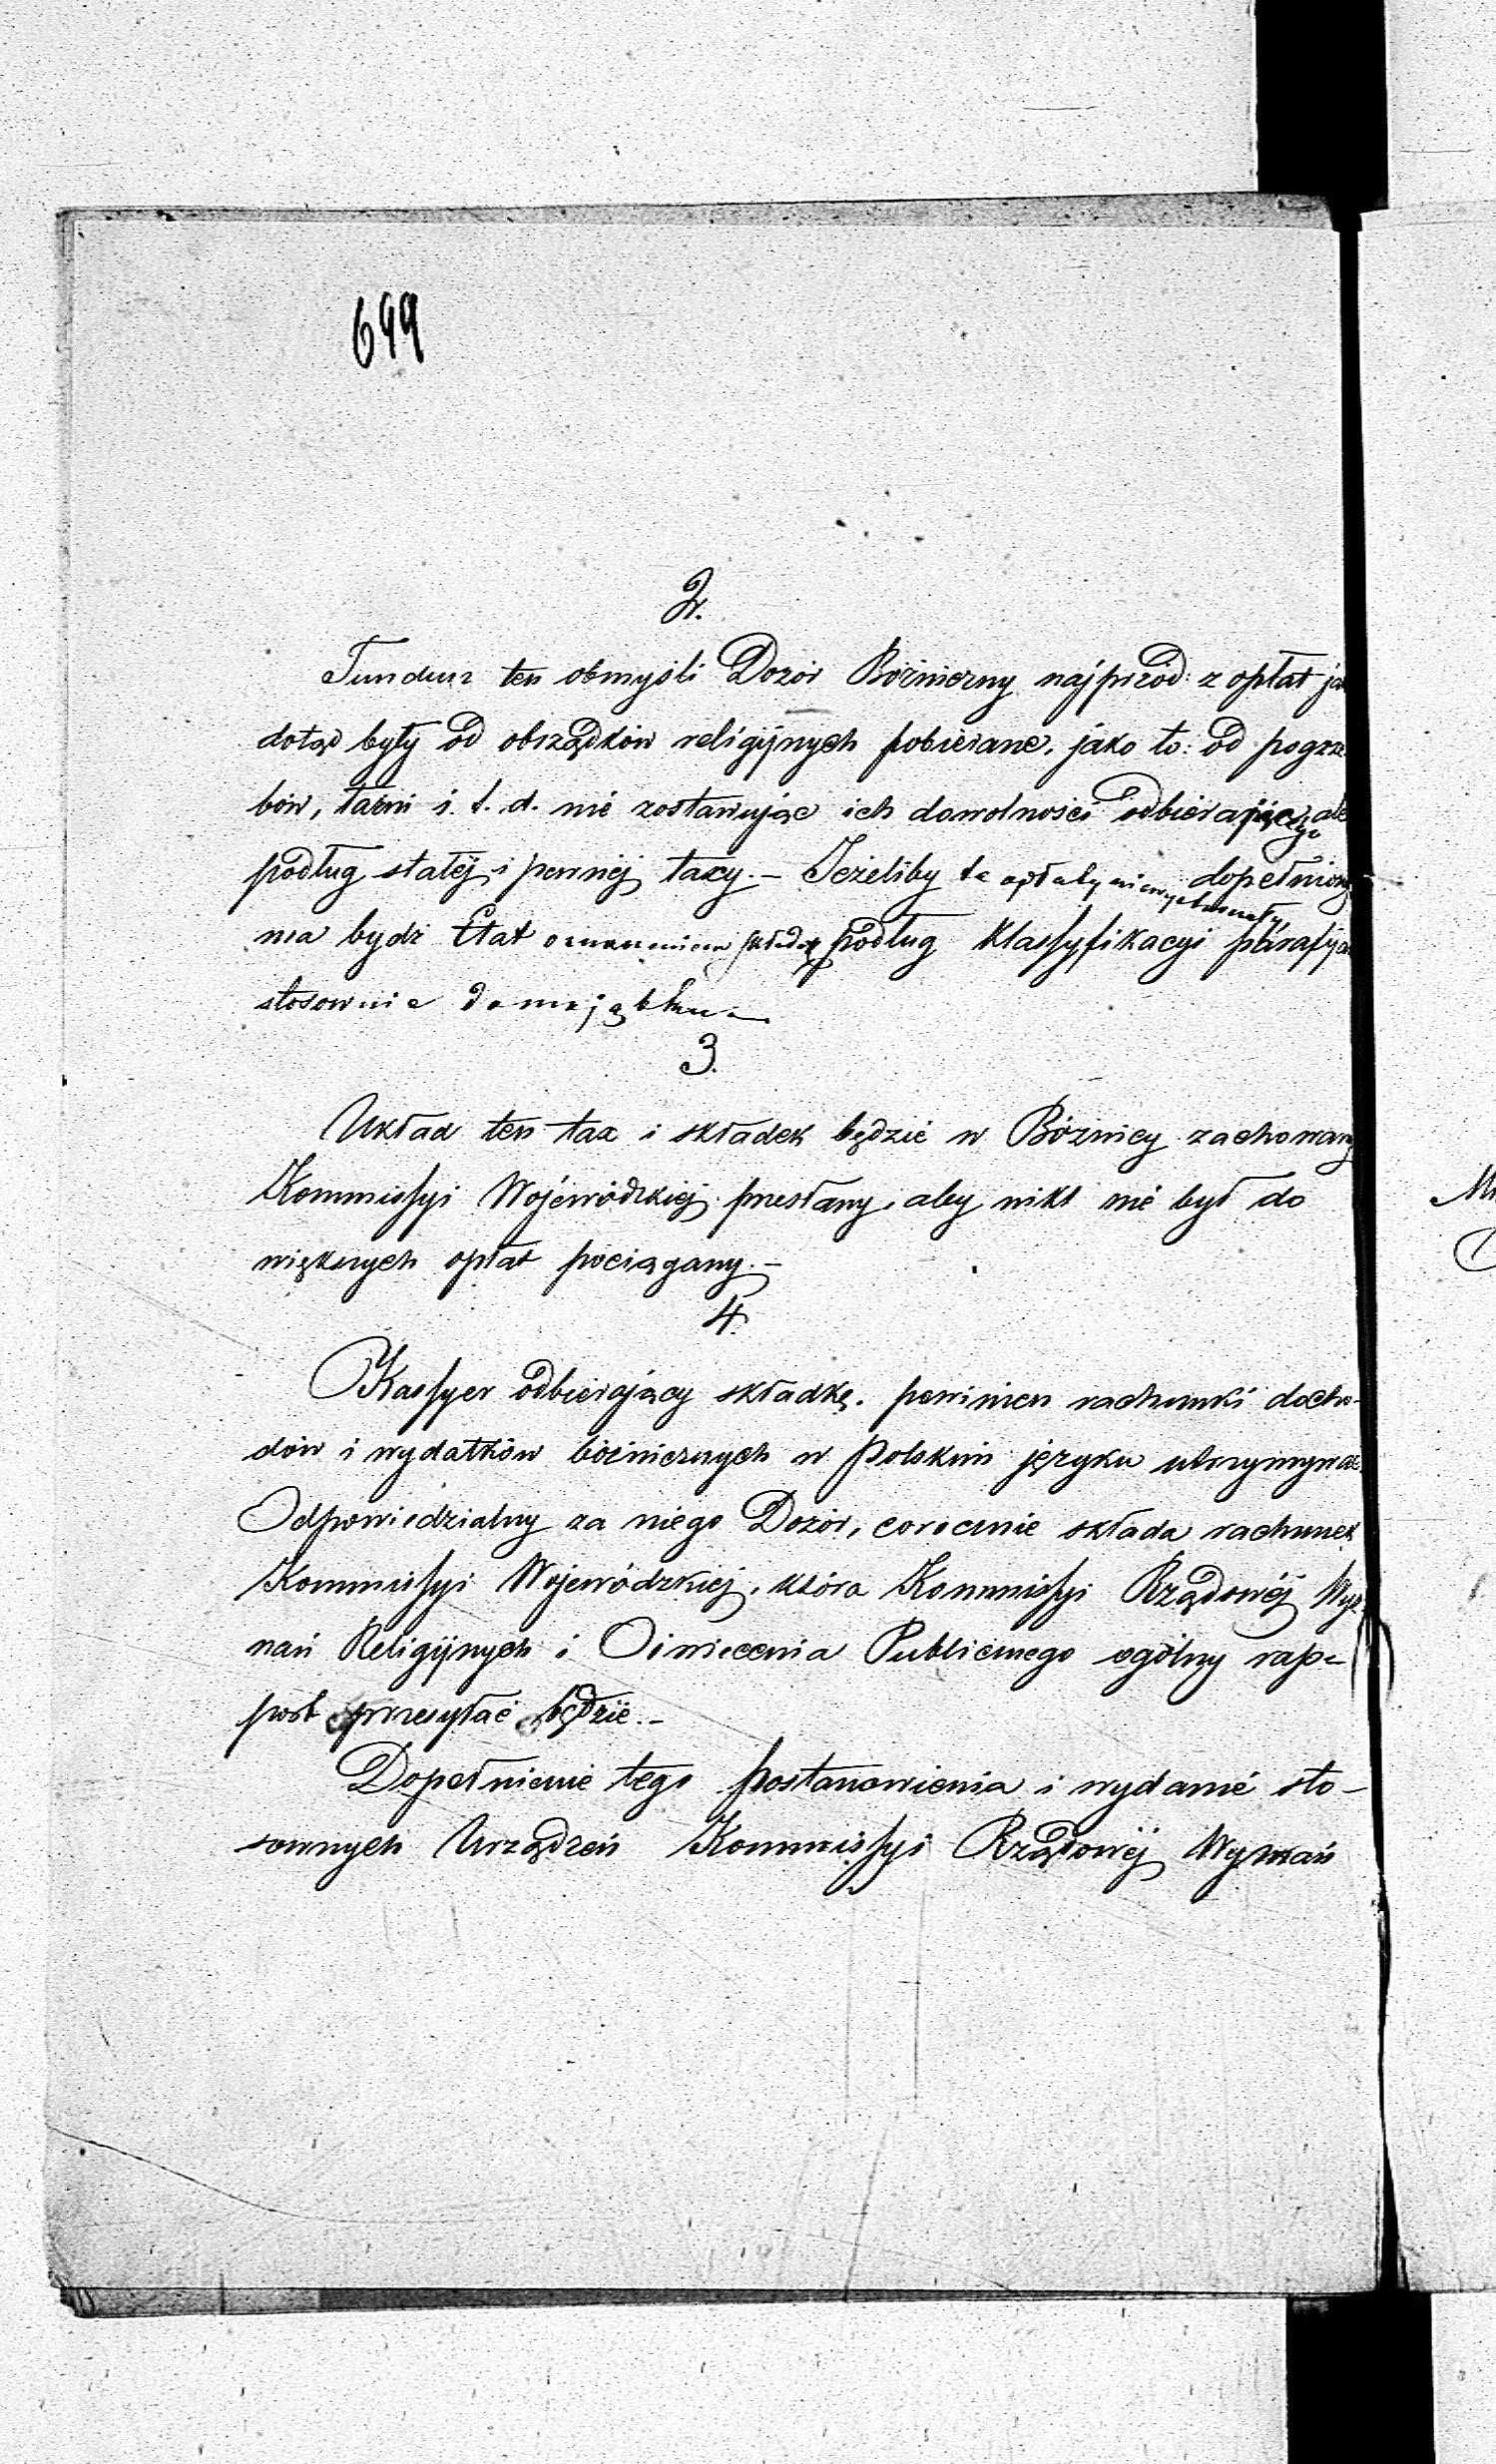 699
2.
Fundusz ten obmyśli Dozór Bóżniczny najprzód: z opłat
dotąd były od obrządków religijnych pobierane, jako to: od pogrze-
bów, łaźni i. t. d. nie zostawując ich dowolności odbierających ale
podług stałéj i pewnéj taxy.— Jeżeliby te opłaty niewystarczały dopełniony
ma bydź Etat oznaczeniem składek podług Klassyfikacyi parafijan
stosownie do majątku.—
3.
Układ ten tax i składek będzie w Bóżnicy zachowany
Kommissyi Wojewódzkiej przesłany, aby nikt nie był do
większych opłat pociągany.—
4.
Kassyer odbierający składkę. powinien rachunki docho-
dów i wydatków bóżnicznych w Polskim języku utrzymywać.
Odpowiedzialny za niego Dozór, corocznie składa rachunek
Kommissyi Wojewódzkiej, która Kommissyi Rządowéj Wyz-
nań Religijnych i Oświecenia Publicznego ogólny rap-
port przesyłać będzie.—
Dopełnienie tego postanowienia i wydanie sto-
sownych Urządzeń Kommissyi Rządowéj Wyznań